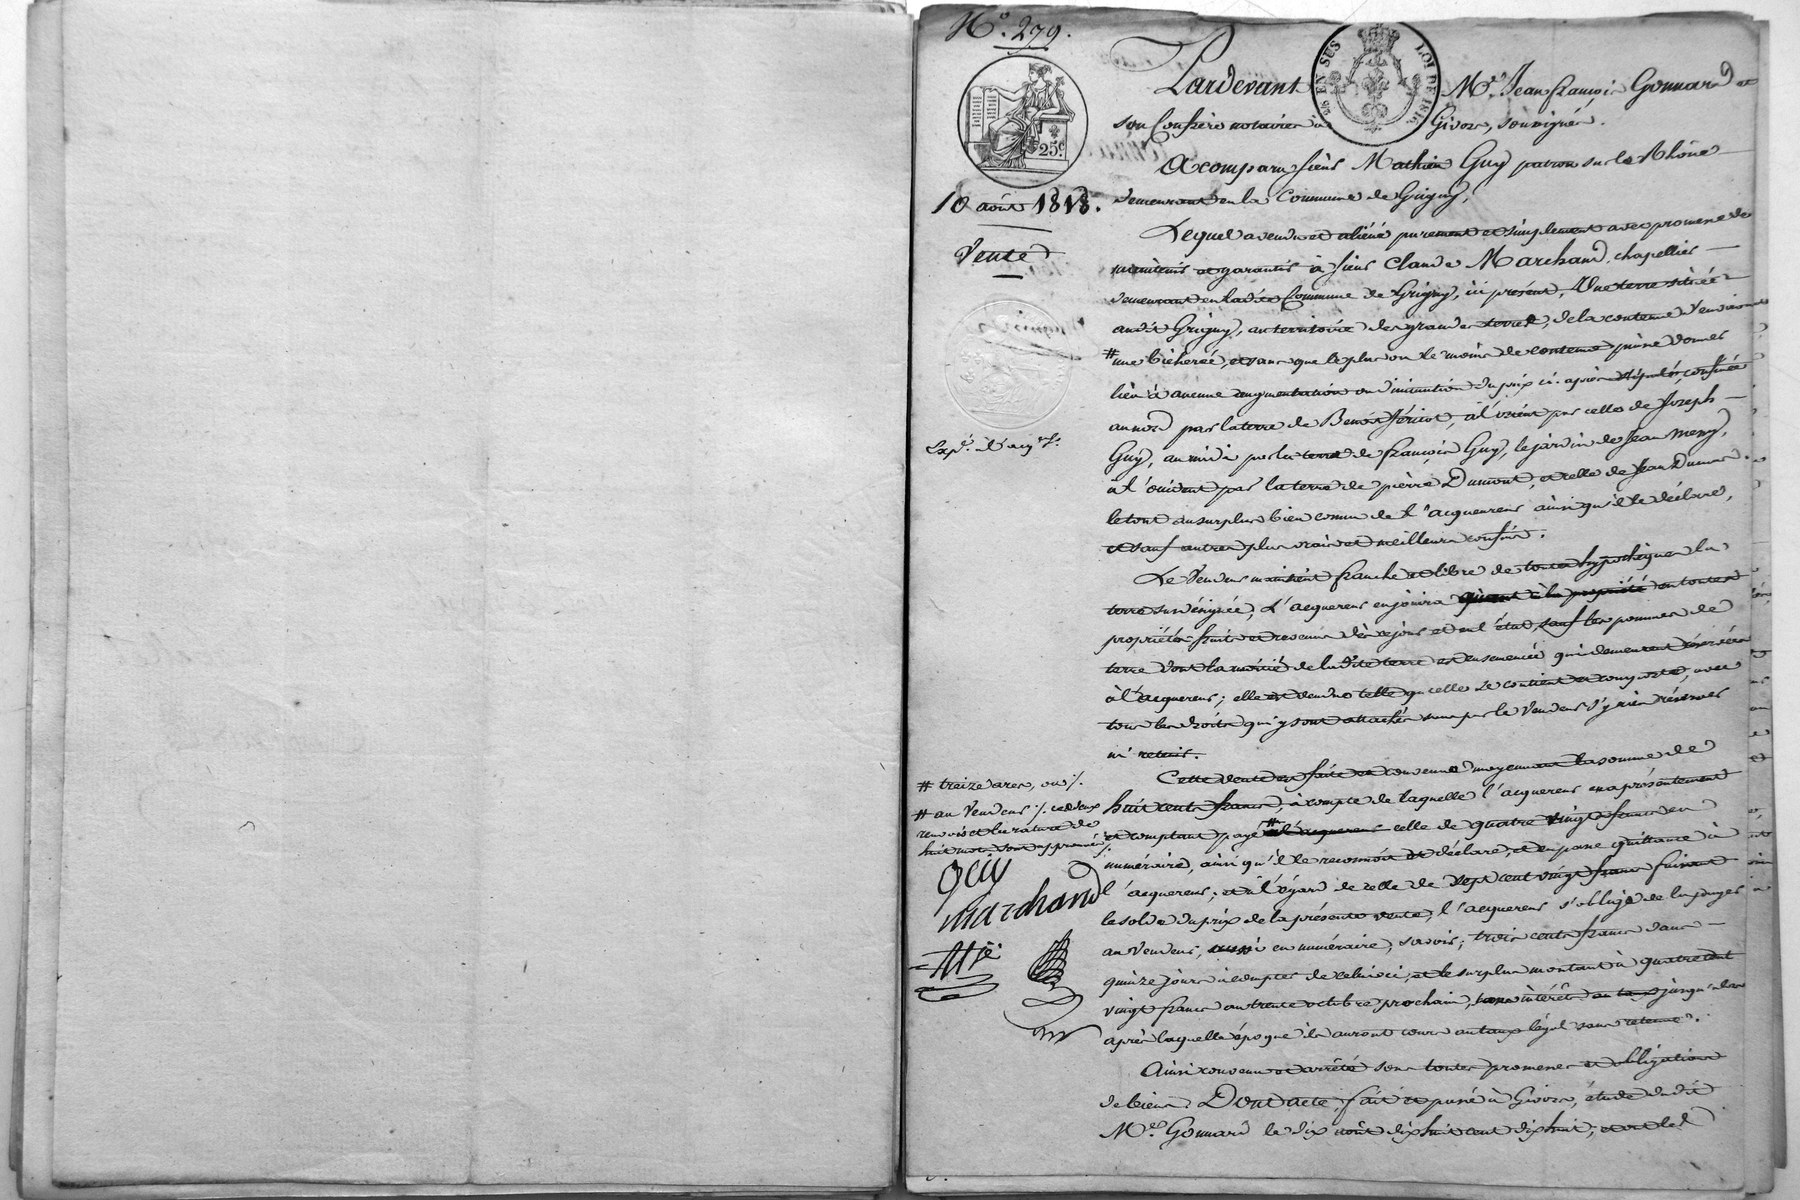 N.° 279.
25.c
EN SUS
LOI DE 1816.
10 août 1818.
Vente
Exp.é d'acq.r
Pardevant M.e Jean françois Gonnard et
son Confrère notaires à Givors, soussignés.
A comparu sieur Mathieu Guy patron sur le Rhône
demeurant en la Commune de Grigny,
Lequel a vendu et aliéné purement et simplement avec promesse de
maintenir et garantir à sieur Claude Marchand, chapellier
demeurant en ladite Commune de Grigny, ici présent, Une terre située
audit Grigny, au territoire des grandes terres, de la contenue d'environ
# une bicherée, et sans que le plus ou le moins de contenue puisse donner
lieu à aucune augmentation ou diminution du prix ci-après stipulé, confinée
au nord par la terre de Benoit, à l'orient par celle de Joseph
Guy, au midi par la terre de françois Guy, le jardin de Jean
à l'occident par la terre de pierre Dumont, et celle de Jean
le tout au surplus bien connu de l'acquereur ainsi qu'il le déclare,
et sauf autres plus vrais et meilleurs confins.
Le Vendeur maintient franche et libre de toutes hypothèques la
terre sus désignée, L'acquereur en jouira en toutes
propriétés fruits et revenus dès ce jour et en l'état, sauf les pommes de
terre dont la moitié de ladite terre est ensemencée qui demeurent réservées
à l'acquereur; elle est vendue telle qu'elle se contient et comporte, avec
tous les droits qui y sont attachés sans par le Vendeur s'y rien réserver
ni retenir.
Cette vente est faite et convenue moyennant la somme de
huit cents francs, à compte de laquelle l'acquereur en a présentement
et comptant payé # celle de quatre vingt francs en
numéraire, ainsi qu'il le reconnoit et déclare, et en passe quittance à
l'acquereur; et à l'égard de celle de sept cent vingt francs faisant
le solde du prix de la présente vente, l'acquereur s'oblige de la payer
au Vendeur, aussi en numéraire, savoir; trois cents francs dans
quinze jours à compter de celui ci, et le surplus montant à quatre cent
vingt francs au trente octobre prochain, sans intérêts jusqu'alors
après laquelle époque ils auront cours au taux légal sans retenue.
Ainsi convenu et arrêté sous toutes promesses et obligations
de biens. Dont acte, fait et passé à Givors, étude dudit
M.e Gonnard le dix août dix huit cent dix huit; et ont les
# treize ares, ou /.
# au Vendeur /. ces deux
renvois et la rature de
huit mots sont approuvés /.
Guy
Marchand